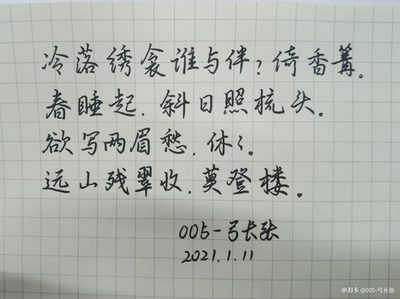 冷落绣衾谁与伴?倚香篝。
春睡起,斜日照梳头。
欲写两眉愁,休々。
远山残翠收,莫登楼。
005-弓长张
2021.1.11
小打卡@005-弓长张